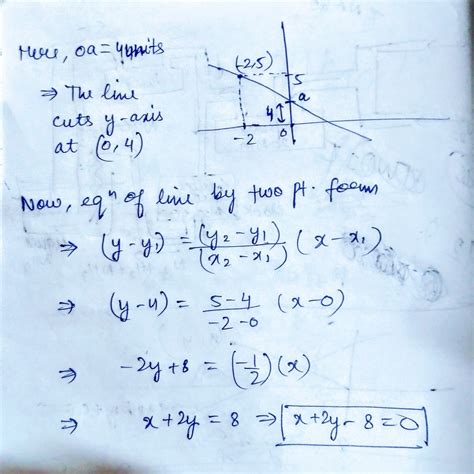 Here, oa = 4units
⇒ The line
cuts y-axis
at (0, 4)
(-2,5)
5
a
4
-2
0
Now, eqⁿ of line by two pt. form
⇒ (y-y₁) = (y₂-y₁)/(x₂-x₁) (x-x₁)
⇒ (y-4) = 5-4/-2-0 (x-0)
⇒ -2y+8 = (-1/2)(x)
⇒ x+2y = 8 ⇒ x+2y-8=0